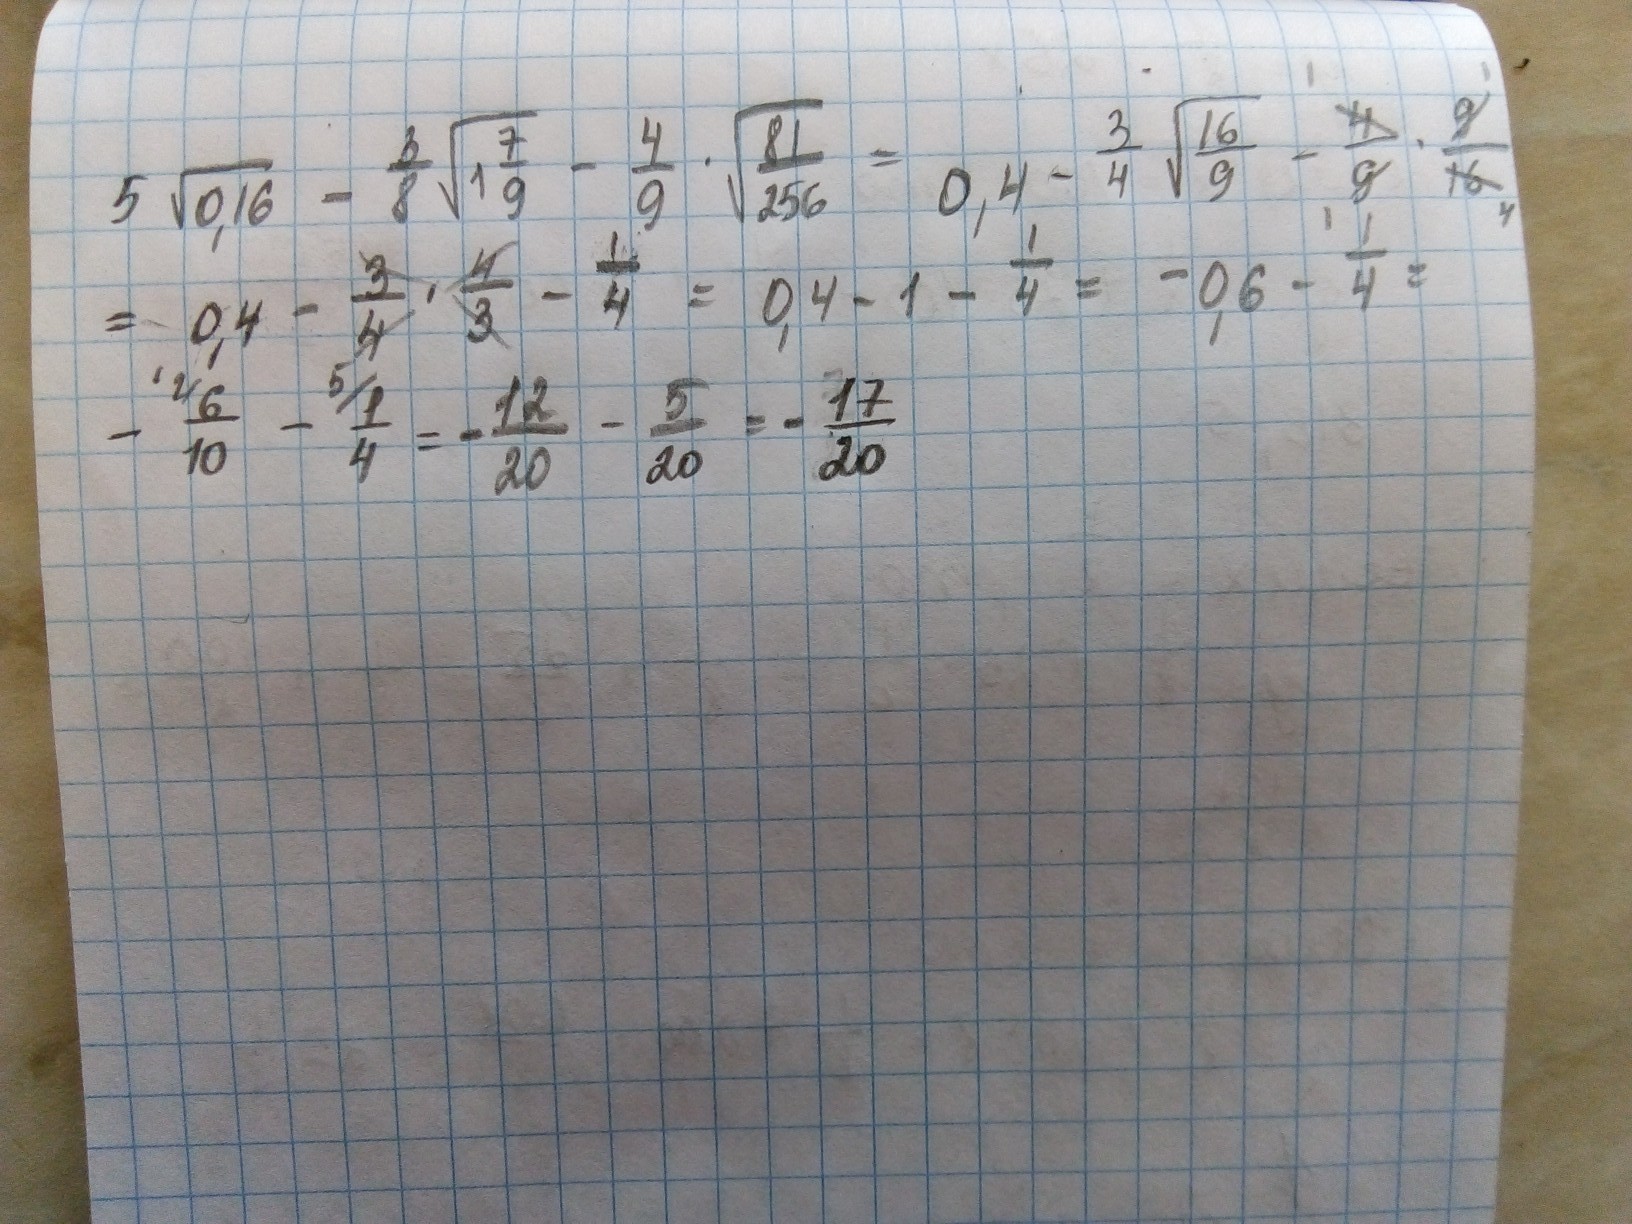 5 √0,16 − 3/8 √1 7/9 − 4/9 · √81/256 = 0,4 − 3/4 √16/9 − 4/9 · 9/16
= 0,4 − 3/4 · 4/3 − 1/4 = 0,4 − 1 − 1/4 = −0,6 − 1/4 =
− 6/10 − 1/4 = − 12/20 − 5/20 = − 17/20